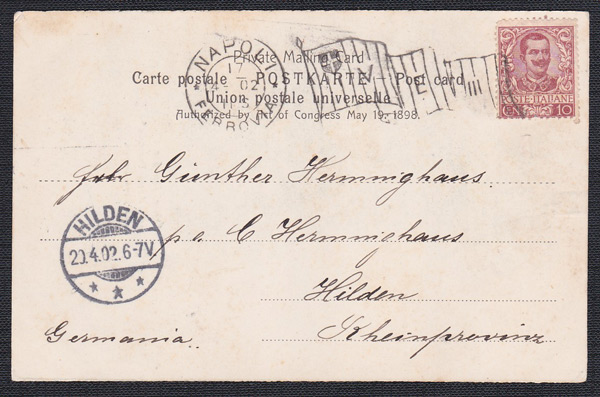 Private Mailing Card
Carte postale — POSTKARTE — Post card
Union postale universelle
Authorized by Act of Congress May 19. 1898.
NAPOLI
17
4- 02
FERROVIA
POSTE ITALIANE
10
Günther Hermninghaus
p. a. C Hermninghaus
Hilden
Rheinprovinz
Germania.
HILDEN
20.4.02.6-7V.